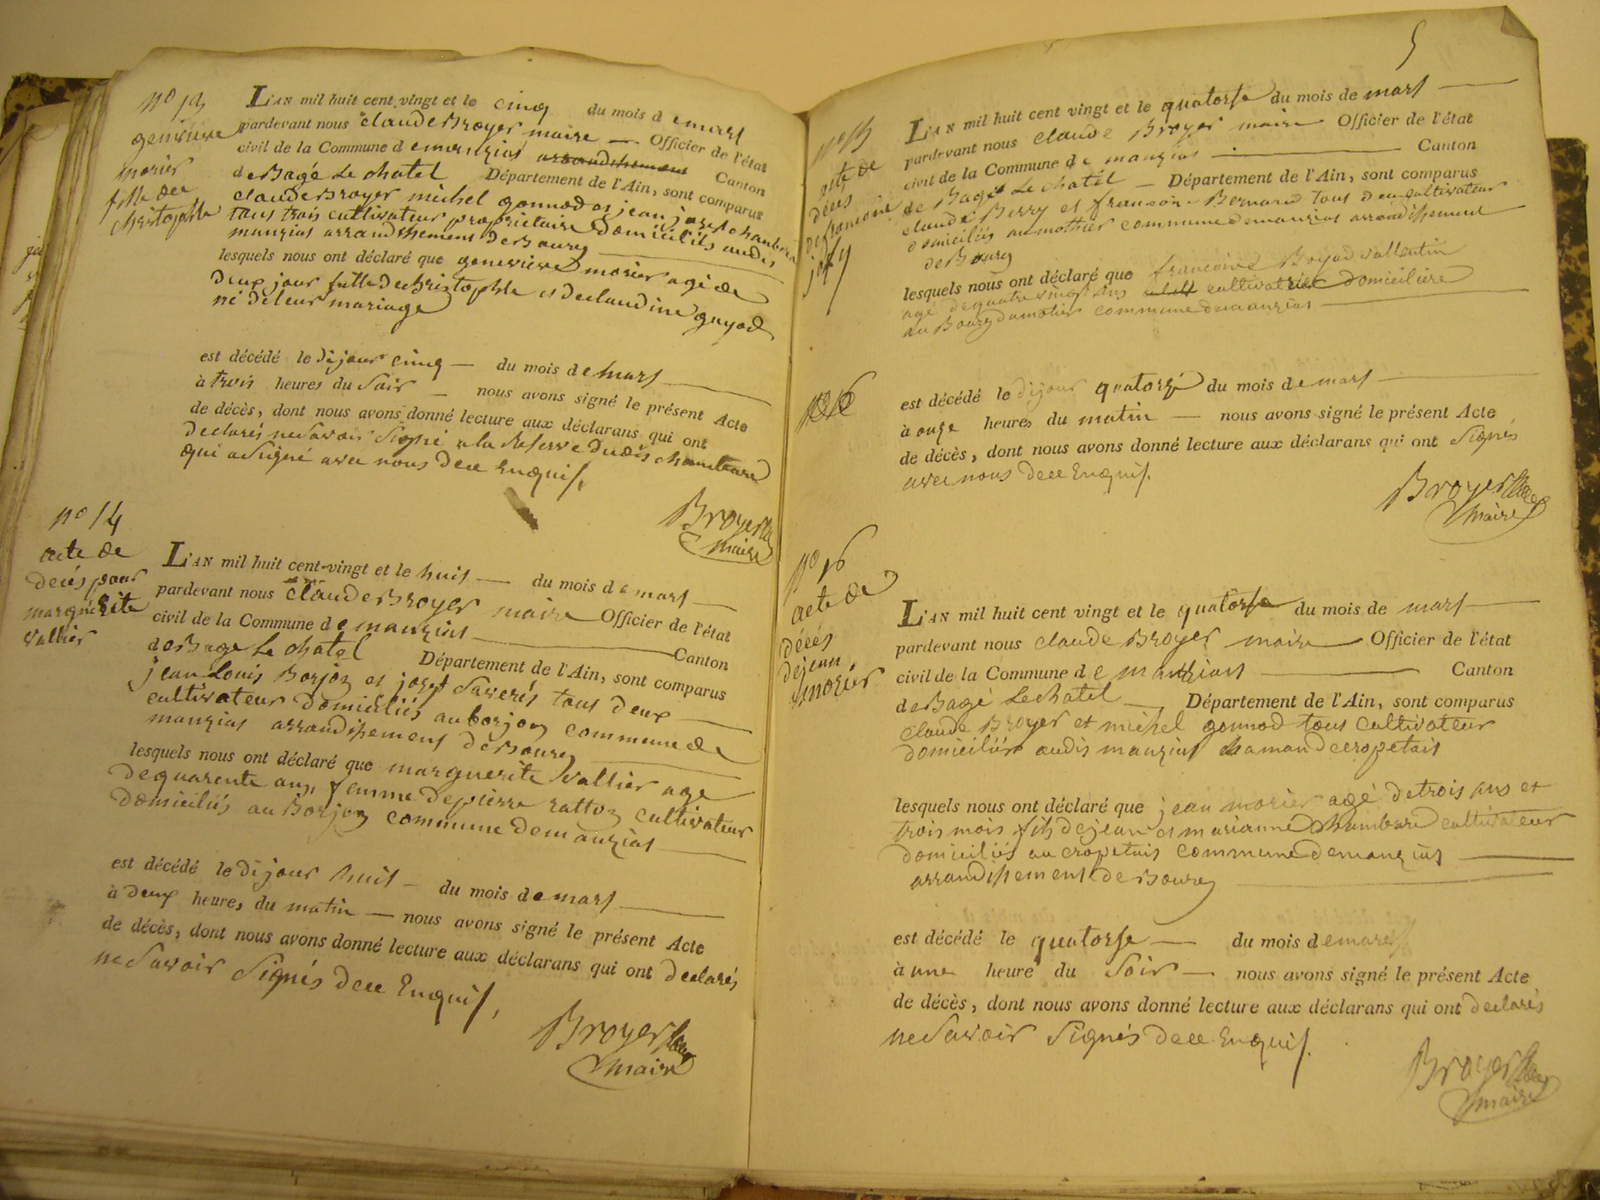 5
n° 13
genevieve
morier
fille de
christophle
L'AN mil huit cent vingt et le cinq du mois de mars
pardevant nous claude Broyer maire Officier de l'état
civil de la Commune de manzias Canton
de Bagé Le chatel Département de l'Ain, sont comparus
claude Broyer michel gonnod et jean josept chambard
tous trois cultivateur propriétaire domiciliés audis
manzias arrandissement de Bourg
lesquels nous ont déclaré que genevieve morier agé de
deux jour fille de christophle et de claudine guyod
né de leur mariage
est décédé le dijour cinq du mois de mars
à trois heures du soir nous avons signé le présent Acte
de décès, dont nous avons donné lecture aux déclarans qui ont
declarés ne savoir signé a la reserve dudis chambard
qui a signé avec nous dece Enquis.
Broyer
maire
n° 14
acte de
decés pour
marguerite
vallier
L'AN mil huit cent-vingt et le huit du mois de mars
pardevant nous claude Broyer maire Officier de l'état
civil de la Commune de manzias Canton
de Bage Le chatel Département de l'Ain, sont comparus
jean Louis Borjon et josept saverés tous deux
cultivateur domiciliés au borjon commune de
manzias arrandissement de Bourg
lesquels nous ont déclaré que marguerite vallier age
de quarente ans, femme de pierre ratton cultivateur
domiciliés au Borjon commune de manzias
est décédé le dijour huit du mois de mars
à deux heures du matin nous avons signé le présent Acte
de décès, dont nous avons donné lecture aux déclarans qui ont declarés
ne savoir signés dece Enquis,
Broyer
maire
n° 15
acte de
décés
de francoise
L'AN mil huit cent vingt et le quatorse du mois de mars
pardevant nous claude Broyer maire Officier de l'état
civil de la Commune de manzias Canton
de Bagé Le chatel Département de l'Ain, sont comparus
claude Berry et francois Bernard tous deux cultivateur
domiciliés au mothier commune de manzias arrandissement
de Bourg
lesquels nous ont déclaré que francoise Boyad vallentin
agé de quatre vingt ans cultivatrice domicilière
au Bourg du motier commune de manzias
est décédé le dijour quatorzé du mois de mars
à onze heures du matin nous avons signé le présent Acte
de décès, dont nous avons donné lecture aux déclarans qui ont signés
avec nous dece Enquis.
Broyer
maire
n° 16
acte de
décés
de jean
morier
L'AN mil huit cent vingt et le quatorse du mois de mars
pardevant nous claude Broyer maire Officier de l'état
civil de la Commune de manzias Canton
de Bagé Le chatel Département de l'Ain, sont comparus
claude Broyer et michel gonnod tous cultivateur
domiciliés audis manzias hamau de cropetais
lesquels nous ont déclaré que jean morier agé de trois ans et
trois mois fils de jean et marianne chambard cultivateur
domiciliés au cropetais commune de manzias
arrandissement de Bourg
est décédé le quatorse du mois de mars
à une heure du soir nous avons signé le présent Acte
de décès, dont nous avons donné lecture aux déclarans qui ont declarés
ne savoir signés dece Enquis.
Broyer
maire